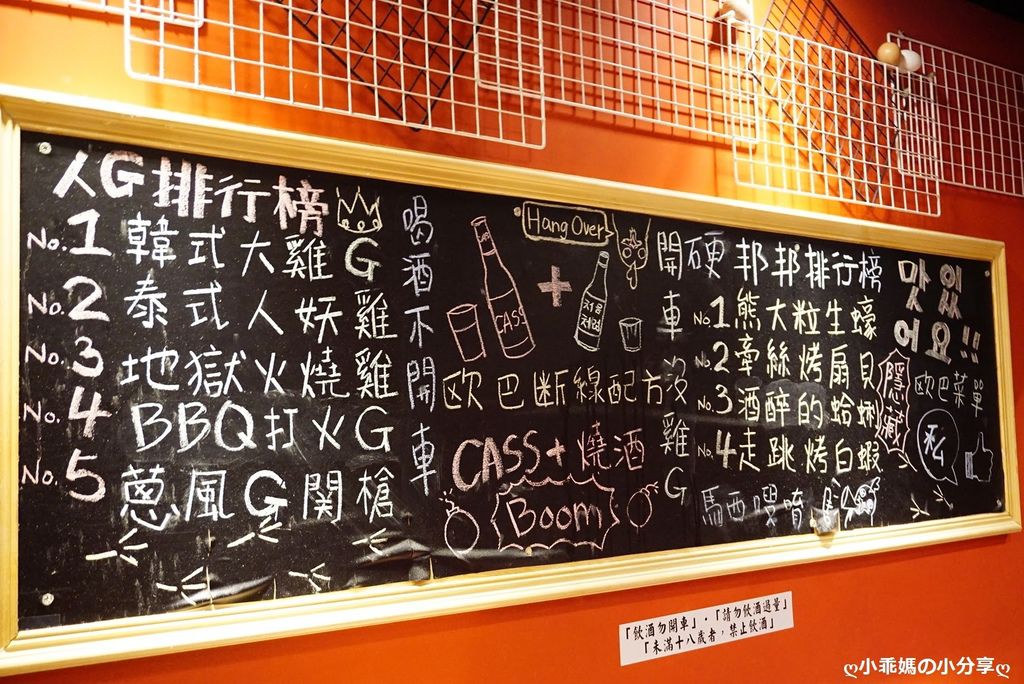 人G排行榜
No.1 韓式大雞G
No.2 泰式人妖雞
No.3 地獄火燒雞
No.4 BBQ打火G
No.5 蔥風G関槍
喝酒不開車
Hang Over
CASS
+
처음처럼
欧巴断線配方
CASS+燒酒
Boom
開車沒雞G
硬邦邦排行榜
No.1熊大粒生蠔
No.2牽絲烤扇貝
No.3酒醉的蛤蜊
No.4走跳烤白蝦
馬西嗖唷
맛있
어요!!
隱藏
欧巴菜單
私
「飲酒勿開車」‧「請勿飲酒過量」
「未滿十八歲者，禁止飲酒」
ღ小乖媽の小分享ღ